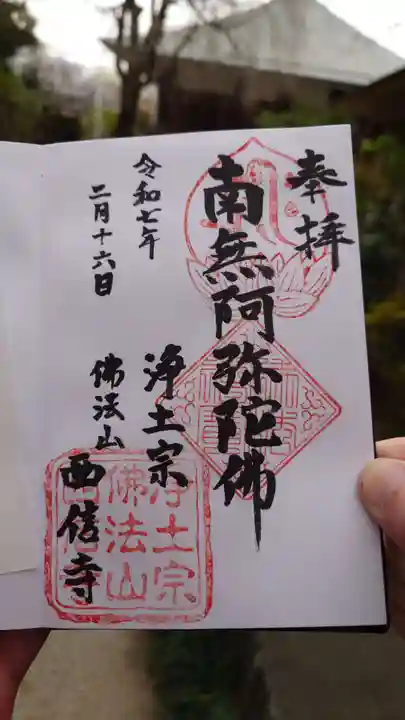 奉拝
南無阿弥陀佛
浄土宗
佛法山
西信寺
令和七年
二月十六日
浄土宗
佛法山
西信寺